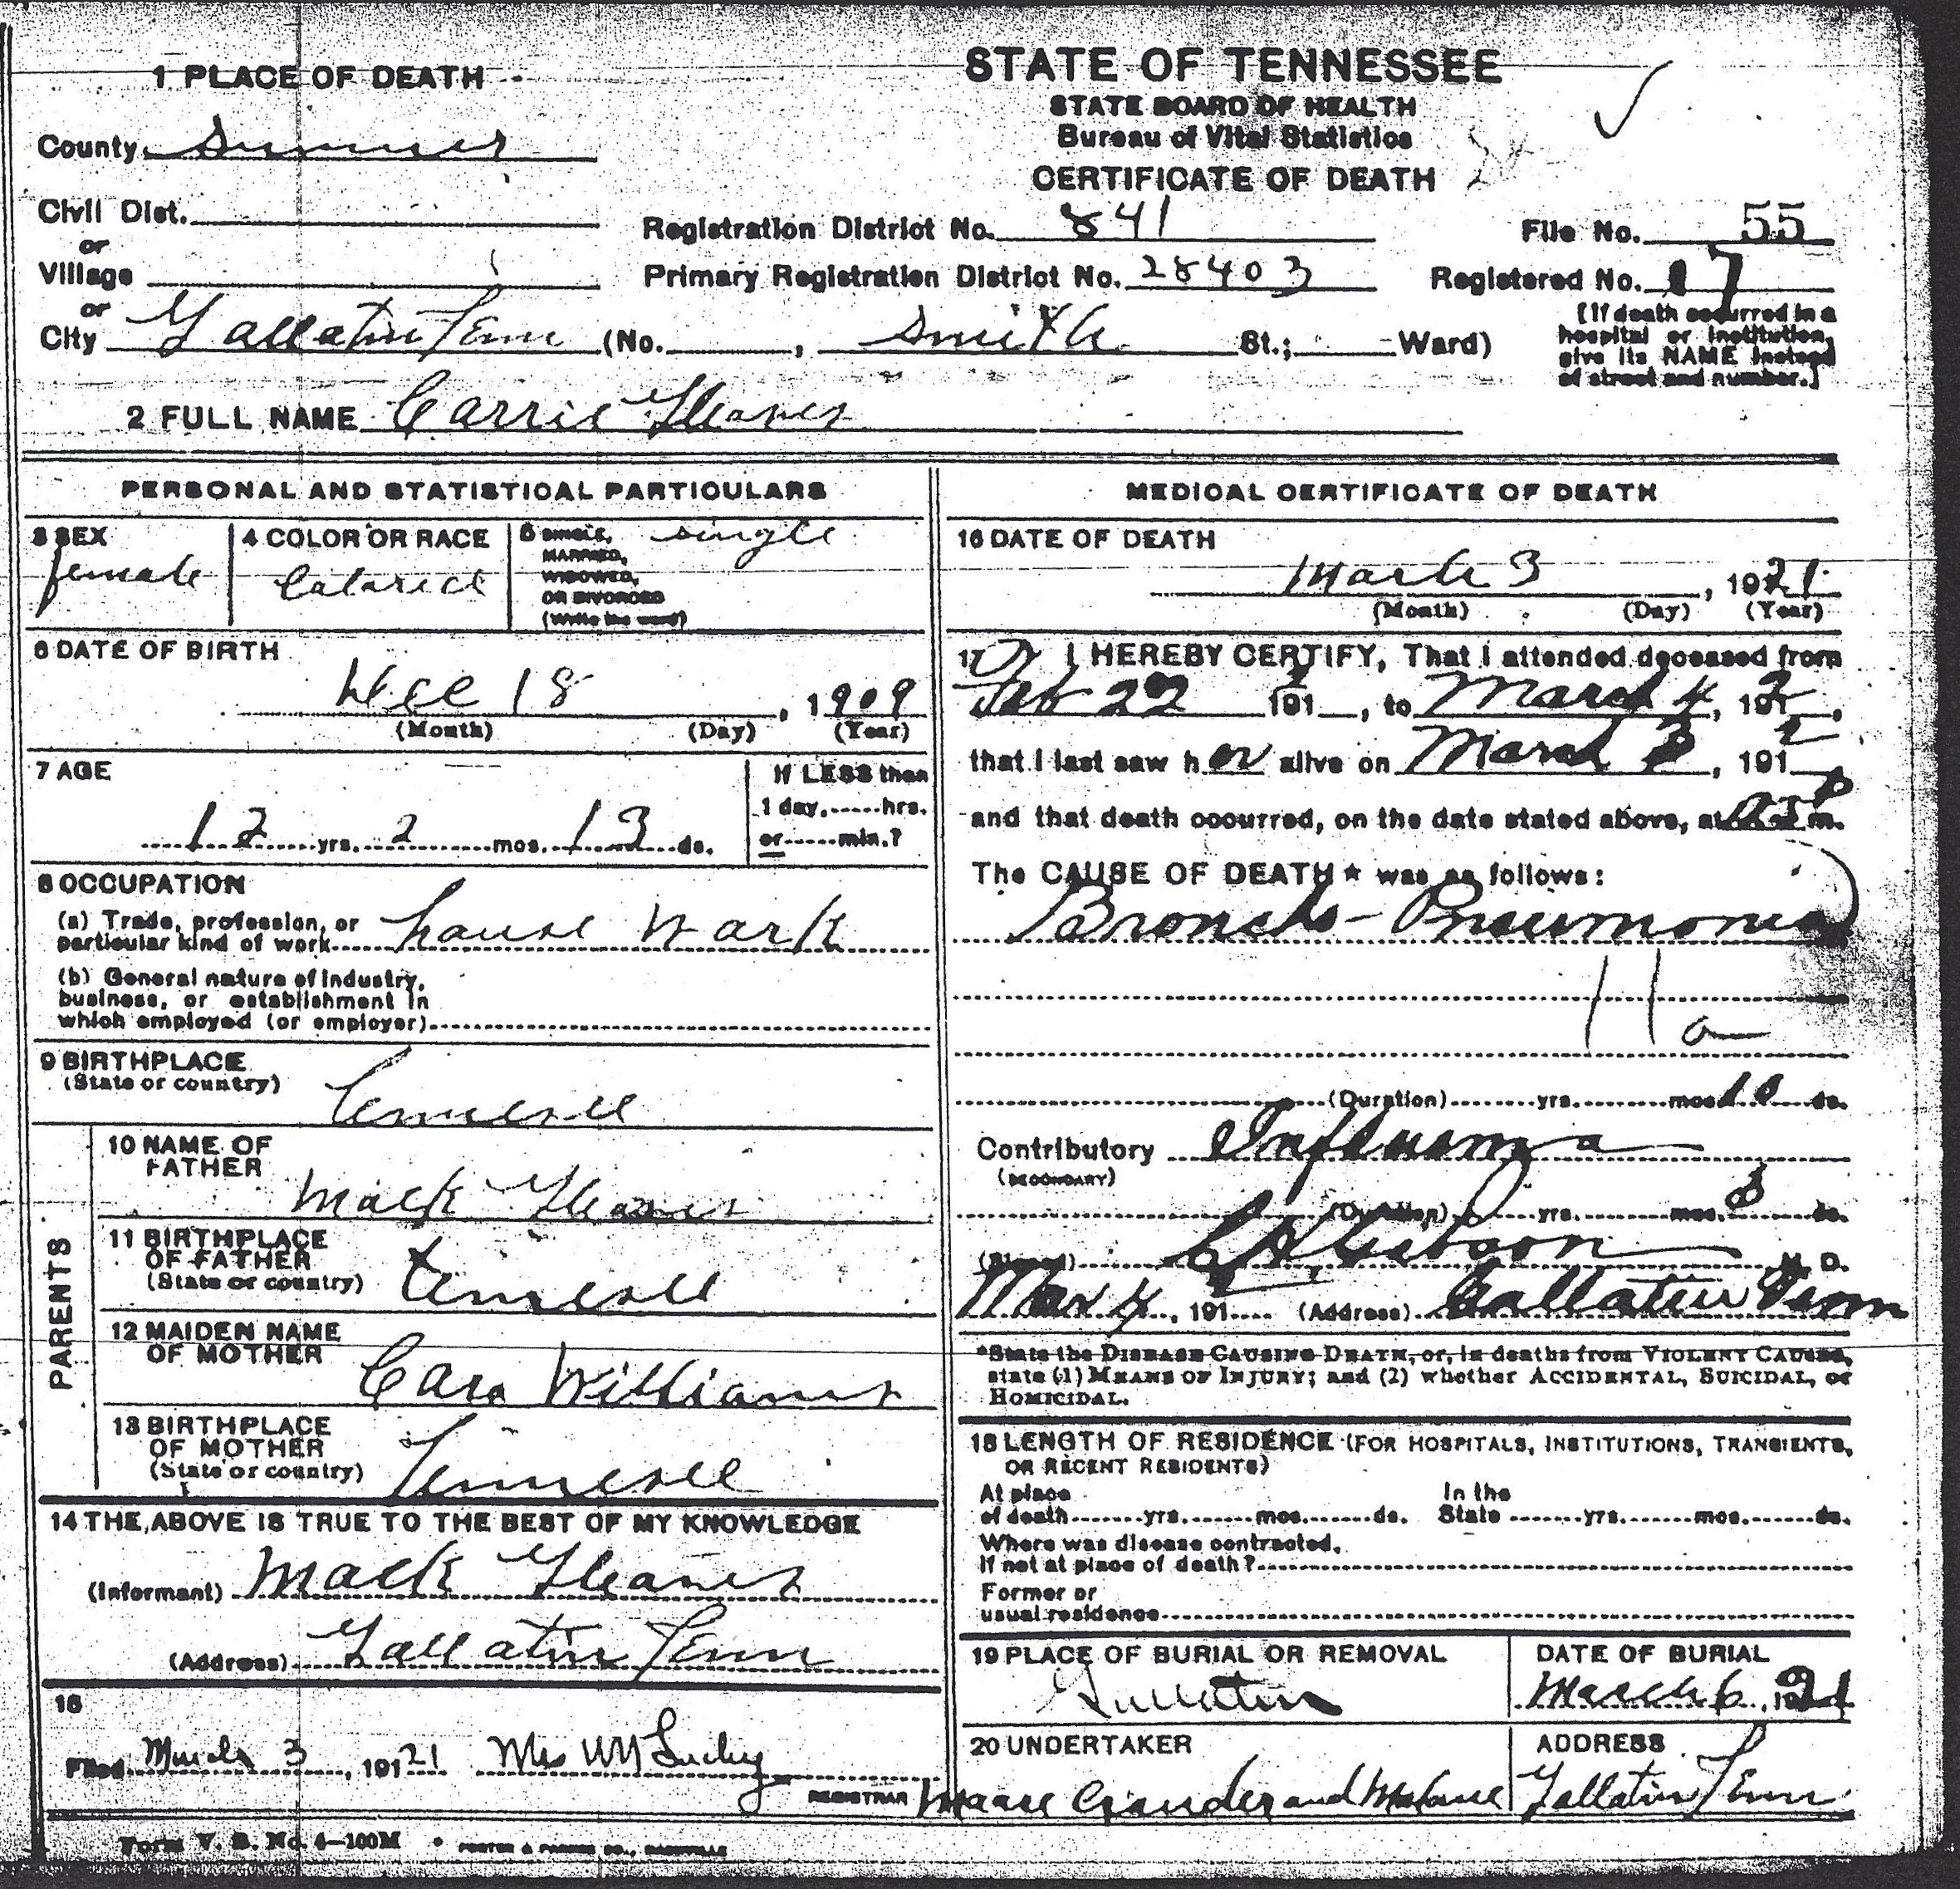 1 PLACE OF DEATH
STATE OF TENNESSEE
STATE BOARD OF HEALTH
Bureau of Vital Statistics
CERTIFICATE OF DEATH
County Sumner
Civil Dist.
or
Village
or
City Gallatin Tenn (No. , Smith St.; Ward)
Registration District No. 841
File No. 55
Primary Registration District No. 28403
Registered No. 17
[If death occurred in a
hospital or institution,
give its NAME instead
of street and number.]
2 FULL NAME Carrie
PERSONAL AND STATISTICAL PARTICULARS
3 SEX
female
4 COLOR OR RACE
Colared
5 SINGLE,
MARRIED,
WIDOWED,
OR DIVORCED
(Write the word)
single
6 DATE OF BIRTH
Dec 18, 1909
(Month) (Day) (Year)
7 AGE
12 yrs. 2 mos. 13 ds.
If LESS than
1 day, hrs.
or min.?
8 OCCUPATION
(a) Trade, profession, or
particular kind of work house wark
(b) General nature of industry,
business, or establishment in
which employed (or employer)
9 BIRTHPLACE
(State or country)
Tennessee
PARENTS
10 NAME OF
FATHER
Mack
11 BIRTHPLACE
OF FATHER
(State or country)
Tennessee
12 MAIDEN NAME
OF MOTHER
Cara Williams
13 BIRTHPLACE
OF MOTHER
(State or country)
Tennessee
14 THE ABOVE IS TRUE TO THE BEST OF MY KNOWLEDGE
(Informant) Mack
(Address) Gallatin Tenn
15
Filed March 3, 191 21 Mrs
REGISTRAR
MEDICAL CERTIFICATE OF DEATH
16 DATE OF DEATH
March 3, 1921
(Month) (Day) (Year)
17 I HEREBY CERTIFY, That I attended deceased from
Feb 22 191 , to March 4, 191 ,
that I last saw her alive on March 3, 191
and that death occurred, on the date stated above, at m.
The CAUSE OF DEATH* was as follows:
Broncho-Pneumonia
11a
(Duration) yrs. mos. 10 ds.
Contributory Influenza
(SECONDARY)
(Duration) yrs. mos. ds.
(Signed) Gibson M. D.
Mar 4, 191 (Address) Gallatin Tenn
*State the DISEASE CAUSING DEATH, or, in deaths from VIOLENT CAUSES,
state (1) MEANS OF INJURY; and (2) whether ACCIDENTAL, SUICIDAL, or
HOMICIDAL.
18 LENGTH OF RESIDENCE (FOR HOSPITALS, INSTITUTIONS, TRANSIENTS,
OR RECENT RESIDENTS)
At place
of death yrs. mos. ds.
In the
State yrs. mos. ds.
Where was disease contracted,
If not at place of death?
Former or
usual residence
19 PLACE OF BURIAL OR REMOVAL
Gallatin
DATE OF BURIAL
March 6, 1921
20 UNDERTAKER
and
ADDRESS
Gallatin Tenn
Form V. S. No. 4—100M • FOSTER & PARKES CO., NASHVILLE